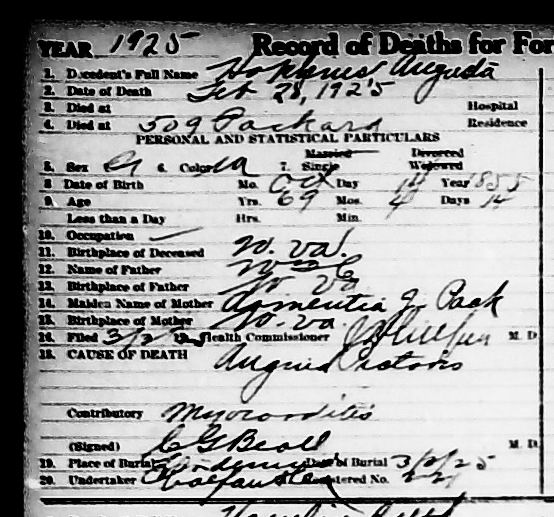 YEAR 1925 Record of Deaths for For
1. Decedent's Full Name Augusta
2. Date of Death Feb 28, 1925
3. Died at Hospital
4. Died at 509 Packard Residence
PERSONAL AND STATISTICAL PARTICULARS
Married Divorced
5. Sex 6. Color 7. Single Widowed
8 Date of Birth Mo. Oct Day 14 Year 1855
9. Age Yrs. 69 Mos. 4 Days 14
Less than a Day Hrs. Min.
10. Occupation
11. Birthplace of Deceased W. Va.
12. Name of Father
13. Birthplace of Father W. Va
14. Maiden Name of Mother Pack
15. Birthplace of Mother W. Va.
16. Filed 3/2/25 Health Commissioner M. D.
18. CAUSE OF DEATH Angina Pectoris
Contributory Myocarditis
(Signed) C G Beall M. D.
19. Place of Burial Date of Burial 3/2/25
20. Undertaker Registered No.